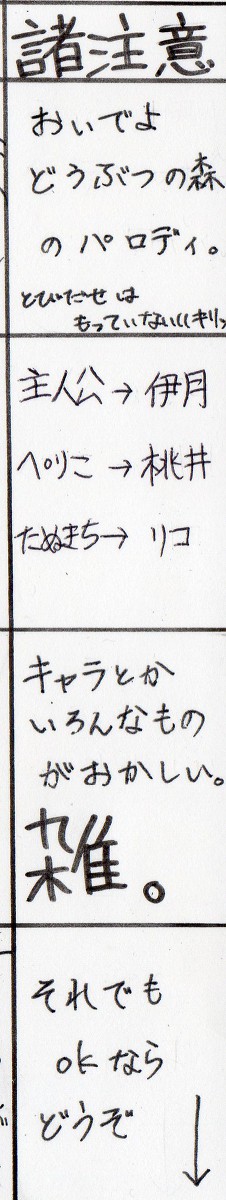 諸注意
おいでよ
どうぶつの森
のパロディ。
とびだせは
もっていない((キリッ
主人公→伊月
ぺりこ→桃井
たぬきち→リコ
キャラとか
いろんなもの
がおかしい。
雑。
それでも
okなら
どうぞ
↓